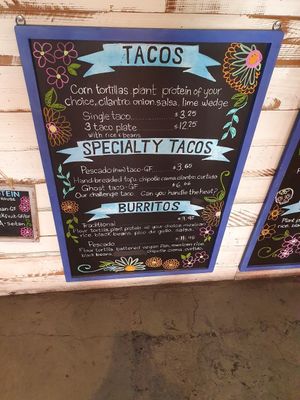 TACOS
Corn tortillas, plant protein of your
choice, cilantro onion, salsa, lime wedge
Single taco $3.25
3 taco plate $12.25
with rice & beans
SPECIALTY TACOS
Pescado taco-GF $3.60
Hand-breaded tofu, chipotle crema, cilantro, curtido
Ghost taco-GF $6.66
Our challenge taco. Can you handle the heat?
BURRITOS
Traditional
Flour tortilla, plant protein of your choice, mexican
rice, black beans, pico de gallo, salsa.
Pescado
Flour tortilla, battered vegan fish, mexican
rice, black beans, chipotle crema, curtido